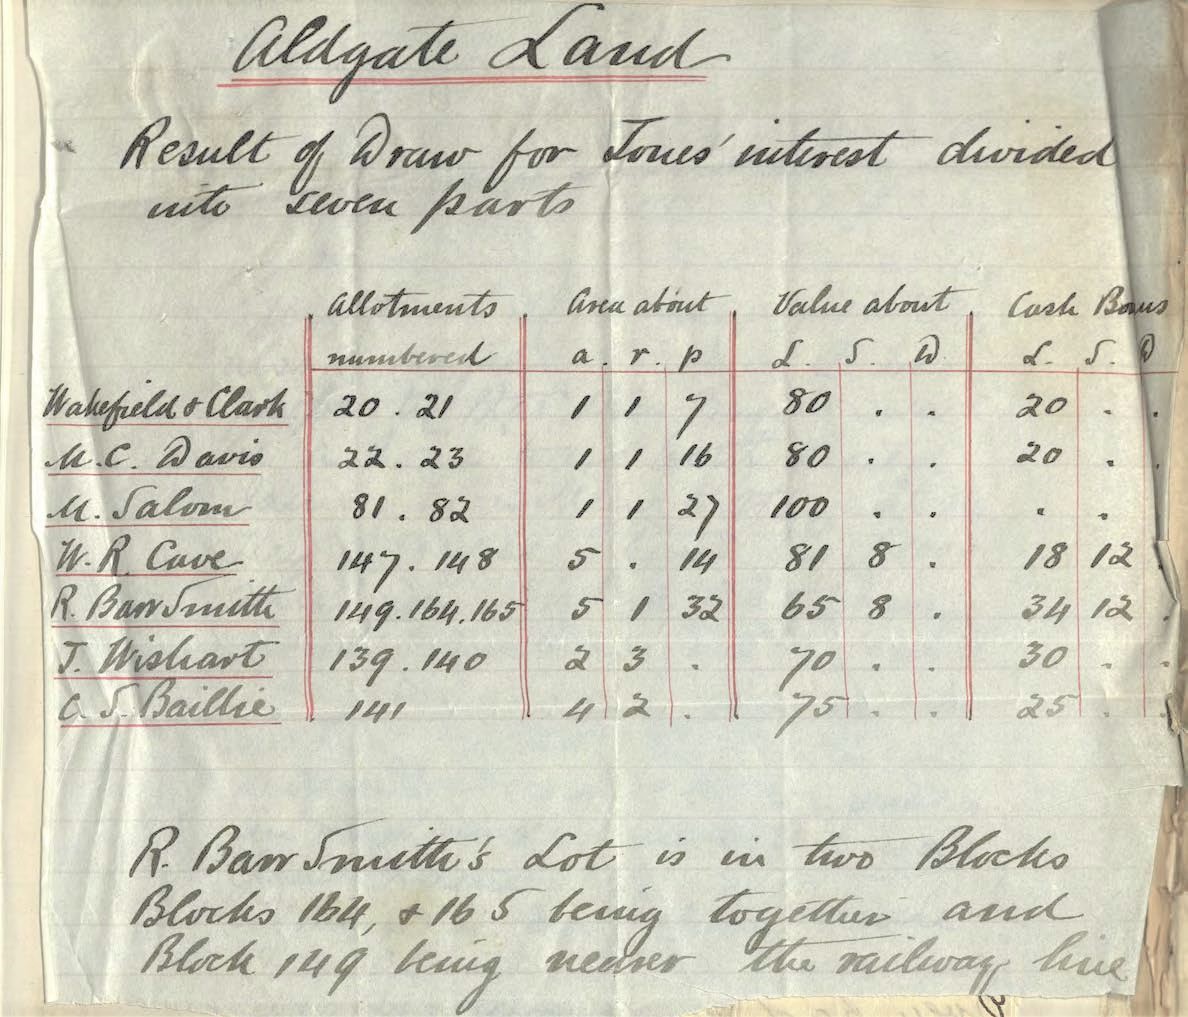 Aldgate Land
Result of Draw for Jones' interest divided
into seven parts
Allotments Area about Value about Cash Bonus
numbered a. r. p £. S. D £. S. D
Wakefield & Clark 20 . 21 1 1 7 80 . . 20 . .
M. C. Davis 22 . 23 1 1 16 80 . . 20 . .
M. Salom 81 . 82 1 1 27 100 . . . .
W. R. Cave 147 . 148 5 . 14 81 8 . 18 12 .
R. Barr Smith 149 . 164 . 165 5 1 32 65 8 . 34 12 .
J. Wishart 139 . 140 2 3 . 70 . . 30 . .
C. S. Baillie 141 4 2 . 75 . . 25 . .
R. Barr Smith's Lot is in two Blocks
Blocks 164, & 165 being together and
Block 149 being nearer the railway line